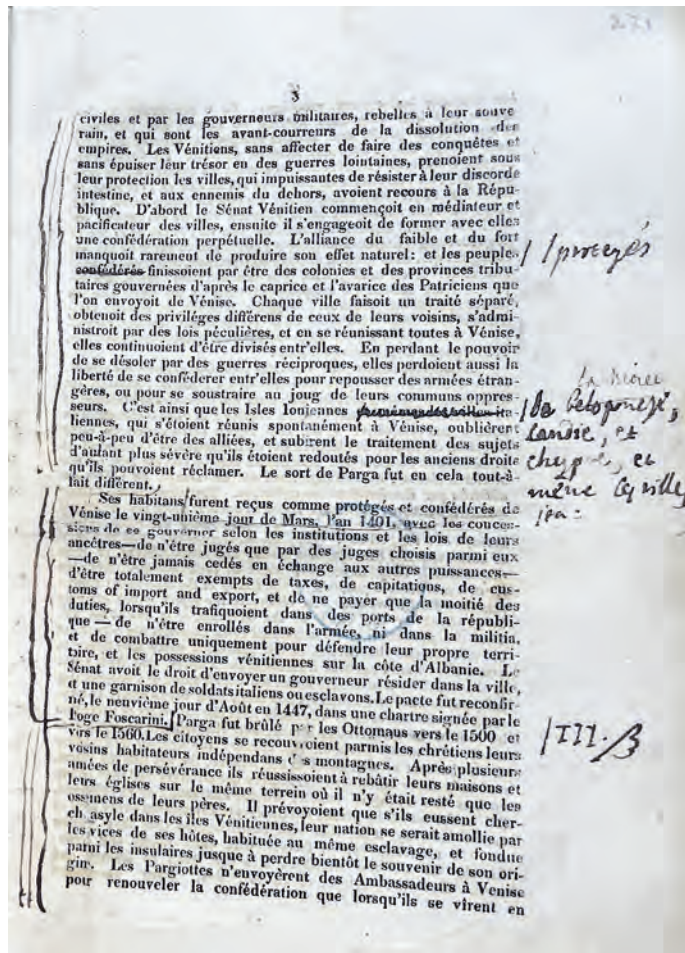 271
3
civiles et par les gouverneurs militaires, rebelles à leur souve
rain, et qui sont les avant-coureurs de la dissolution des
empires. Les Vénitiens, sans affecter de faire des conquêtes et
sans épuiser leur trésor en des guerres lointaines, prenoient sous
leur protection les villes, qui impuissantes de résister à leur discorde
intestine, et aux ennemis du dehors, avoient recours à la Répu-
blique. D'abord le Sénat Vénitien commençoit en médiateur et
pacificateur des villes, ensuite il s'engageoit de former avec elles
une confédération perpétuelle. L'alliance du faible et du fort
manquoit rarement de produire son effet naturel: et les peuples / /protegés
confédérés finissoient par être des colonies et des provinces tribu-
taires gouvernées d'après le caprice et l'avarice des Patriciens que
l'on envoyoit de Vénise. Chaque ville faisoit un traité séparé,
obtenoit des priviléges différens de ceux de leurs voisins, s'admi-
nistroit par des lois péculières, et en se réunissant toutes à Vénise,
elles continuoient d'être divisés entr'elles. En perdant le pouvoir
de se désoler par des guerres réciproques, elles perdoient aussi la
liberté de se conféderer entr'elles pour repousser des armées étran-
gères, ou pour se soustraire au joug de leurs communs oppres-
seurs. C'est ainsi que les Isles Ioniennes ita-
liennes, qui s'étoient réunis spontanément à Vénise, oublièrent
peu-à-peu d'être des alliées, et subirent le traitement des sujets
d'autant plus sévère qu'ils étoient redoutés pour les anciens droits
qu'ils pouvoient réclamer. Le sort de Parga fut en cela tout-à-
fait différent.
la Morée
Peloponese,
Candie, et
chypre, et
même villes
Ses habitans furent reçus comme protégés et confédérés de
Vénise le vingt-unième jour de Mars, l'an 1401, avec les conces-
sions de se gouverner selon les institutions et les lois de leurs
ancétres—de n'être jugés que par des juges choisis parmi eux
—de n'être jamais cedés en échange aux autres puissances—
d'être totalement exempts de taxes, de capitations, de cus-
toms of import and export, et de ne payer que la moitié des
duties, lorsqu'ils trafiquoient dans des ports de la républi-
que — de n'être enrollés dans l'armée, ni dans la militia,
et de combattre uniquement pour défendre leur propre terri-
toire, et les possessions vénitiennes sur la côte d'Albanie. Le
Sénat avoit le droit d'envoyer un gouverneur résider dans la ville,
et une garnison de soldats italiens ou esclavons. Le pacte fut reconfir-
mé, le neuvième jour d'Août en 1447, dans une chartre signée par le
Doge Foscarini. Parga fut brûlé par les Ottomaus vers le 1500 et /III. B
vers le 1560. Les citoyens se recouvroient parmis les chrétiens leurs
voisins habitateurs indépendans des montagnes. Après plusieurs
années de persévérance ils réussissoient à rebâtir leurs maisons et
leurs églises sur le même terrein où il n'y était resté que les
ossimens de leurs pères. Il prévoyoient que s'ils eussent cher-
ch asyle dans les îles Vénitiennes, leur nation se serait amollie par
les vices de ses hôtes, habituée au même esclavage, et fondue
parmi les insulaires jusque à perdre bientôt le souvenir de son ori-
gine. Les Pargiottes n'envoyèrent des Ambassadeurs à Venise
pour renouveler la confédération que lorsqu'ils se virent en